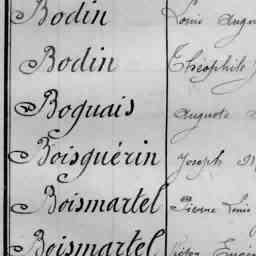 Bodin Louis
Bodin Théophile
Boguais Auguste
Boisguérin Joseph
Boismartel Pierre Louis
Boismartel Victor